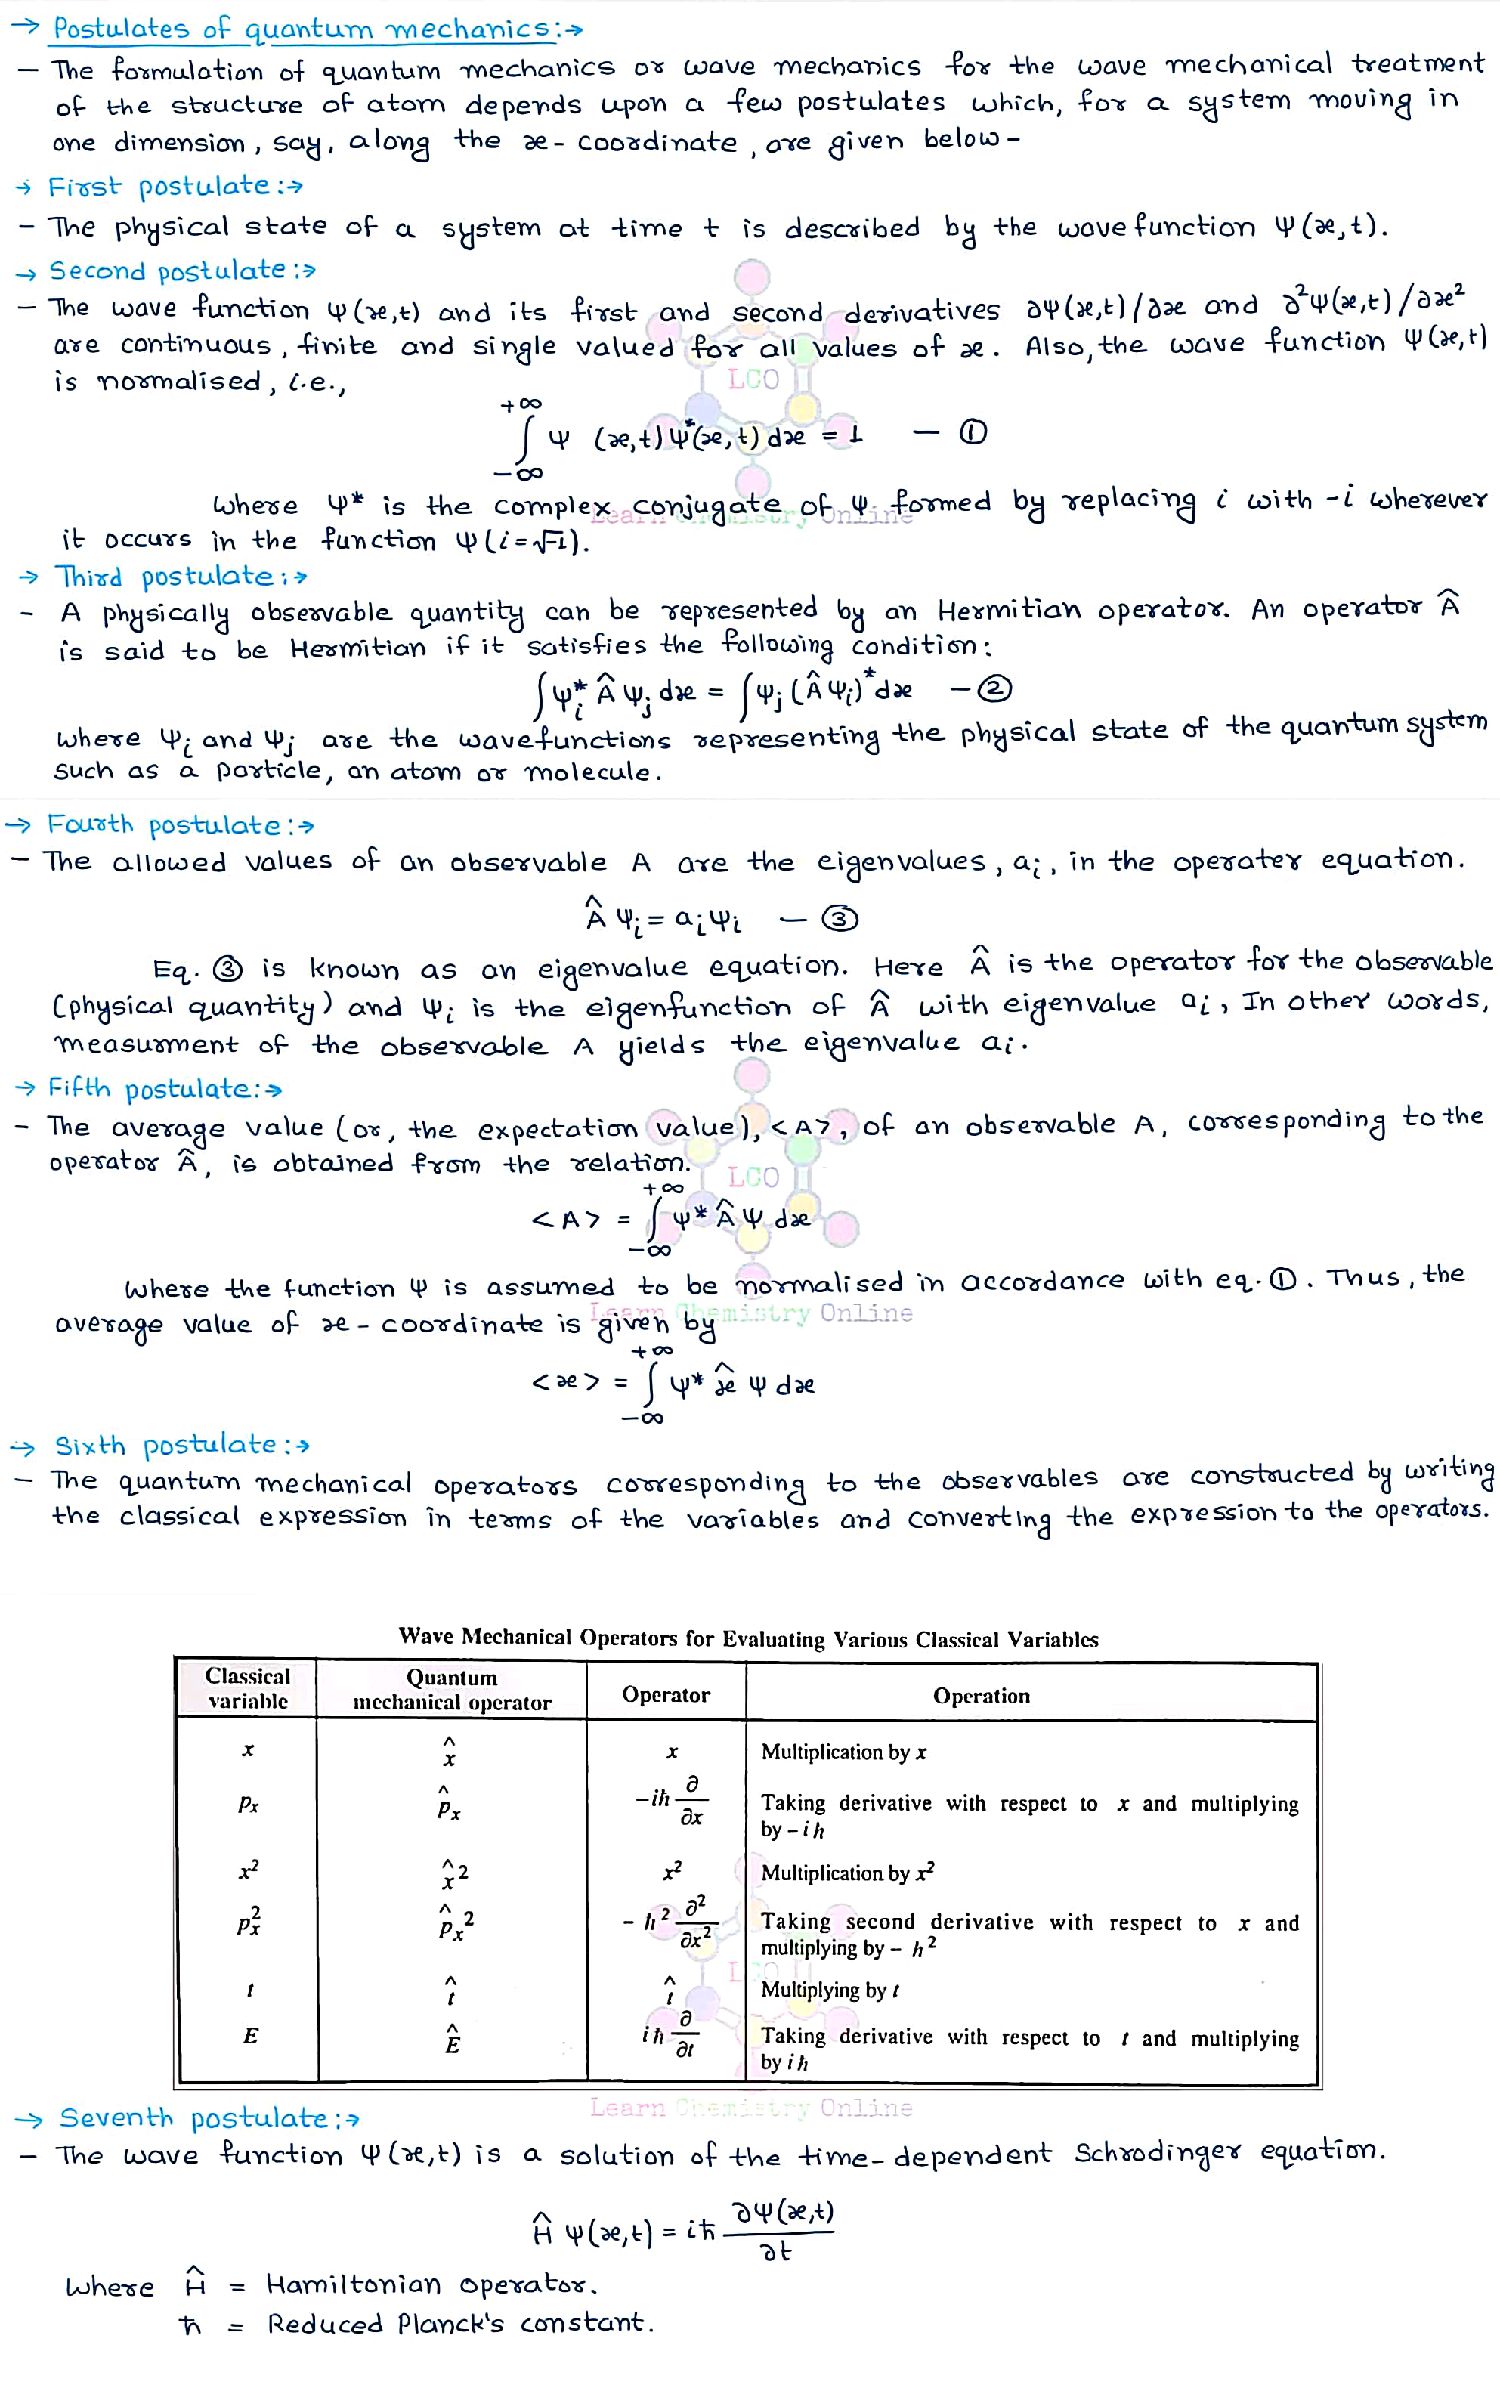 → Postulates of quantum mechanics:→
– The formulation of quantum mechanics or wave mechanics for the wave mechanical treatment
of the structure of atom depends upon a few postulates which, for a system moving in
one dimension, say, along the x-coordinate, are given below-
→ First postulate:→
– The physical state of a system at time t is described by the wavefunction Ψ(x,t).
→ Second postulate:→
– The wave function Ψ(x,t) and its first and second derivatives ∂Ψ(x,t)/∂x and ∂²Ψ(x,t)/∂x²
are continuous, finite and single valued for all values of x. Also, the wave function Ψ(x,t)
is normalised, i.e.,
LCO
∫₋∞⁺∞ Ψ (x,t)Ψ*(x,t)dx = 1 – ①
where Ψ* is the complex conjugate of Ψ formed by replacing i with -i wherever
Learn Chemistry Online
it occurs in the function Ψ(i=√-1).
→ Third postulate:→
– A physically observable quantity can be represented by an Hermitian operator. An operator Â
is said to be Hermitian if it satisfies the following condition:
∫Ψᵢ* Â Ψⱼ dx = ∫Ψⱼ (Â Ψᵢ)* dx – ②
where Ψᵢ and Ψⱼ are the wavefunctions representing the physical state of the quantum system
such as a particle, an atom or molecule.
→ Fourth postulate:→
– The allowed values of an observable A are the eigenvalues, aᵢ, in the operater equation.
Â Ψᵢ = aᵢΨᵢ – ③
Eq. ③ is known as an eigenvalue equation. Here Â is the operator for the observable
(physical quantity) and Ψᵢ is the eigenfunction of Â with eigenvalue aᵢ, In other words,
measurment of the observable A yields the eigenvalue aᵢ.
→ Fifth postulate:→
– The average value (or, the expectation value), <A>, of an observable A, corresponding to the
operator Â, is obtained from the relation.
LCO
<A> = ∫₋∞⁺∞ Ψ* Â Ψ dx
where the function Ψ is assumed to be normalised in accordance with eq. ①. Thus, the
Learn Chemistry Online
average value of x-coordinate is given by
<x> = ∫₋∞⁺∞ Ψ* x̂ Ψ dx
→ Sixth postulate:→
– The quantum mechanical operators corresponding to the observables are constructed by writing
the classical expression in terms of the variables and converting the expression to the operators.
Wave Mechanical Operators for Evaluating Various Classical Variables
Classical variable | Quantum mechanical operator | Operator | Operation
x | x̂ | x | Multiplication by x
pₓ | p̂ₓ | -iħ ∂/∂x | Taking derivative with respect to x and multiplying
by – iħ
x² | x̂² | x² | Multiplication by x²
pₓ² | p̂ₓ² | - ħ² ∂²/∂x² | Taking second derivative with respect to x and
multiplying by – ħ²
t | t̂ | t̂ | Multiplying by t
E | Ê | iħ ∂/∂t | Taking derivative with respect to t and multiplying
by iħ
Learn Chemistry Online
→ Seventh postulate:→
– The wave function Ψ(x,t) is a solution of the time-dependent Schrodinger equation.
Ĥ Ψ(x,t) = iħ ∂Ψ(x,t)/∂t
where Ĥ = Hamiltonian operator.
ħ = Reduced Planck's constant.